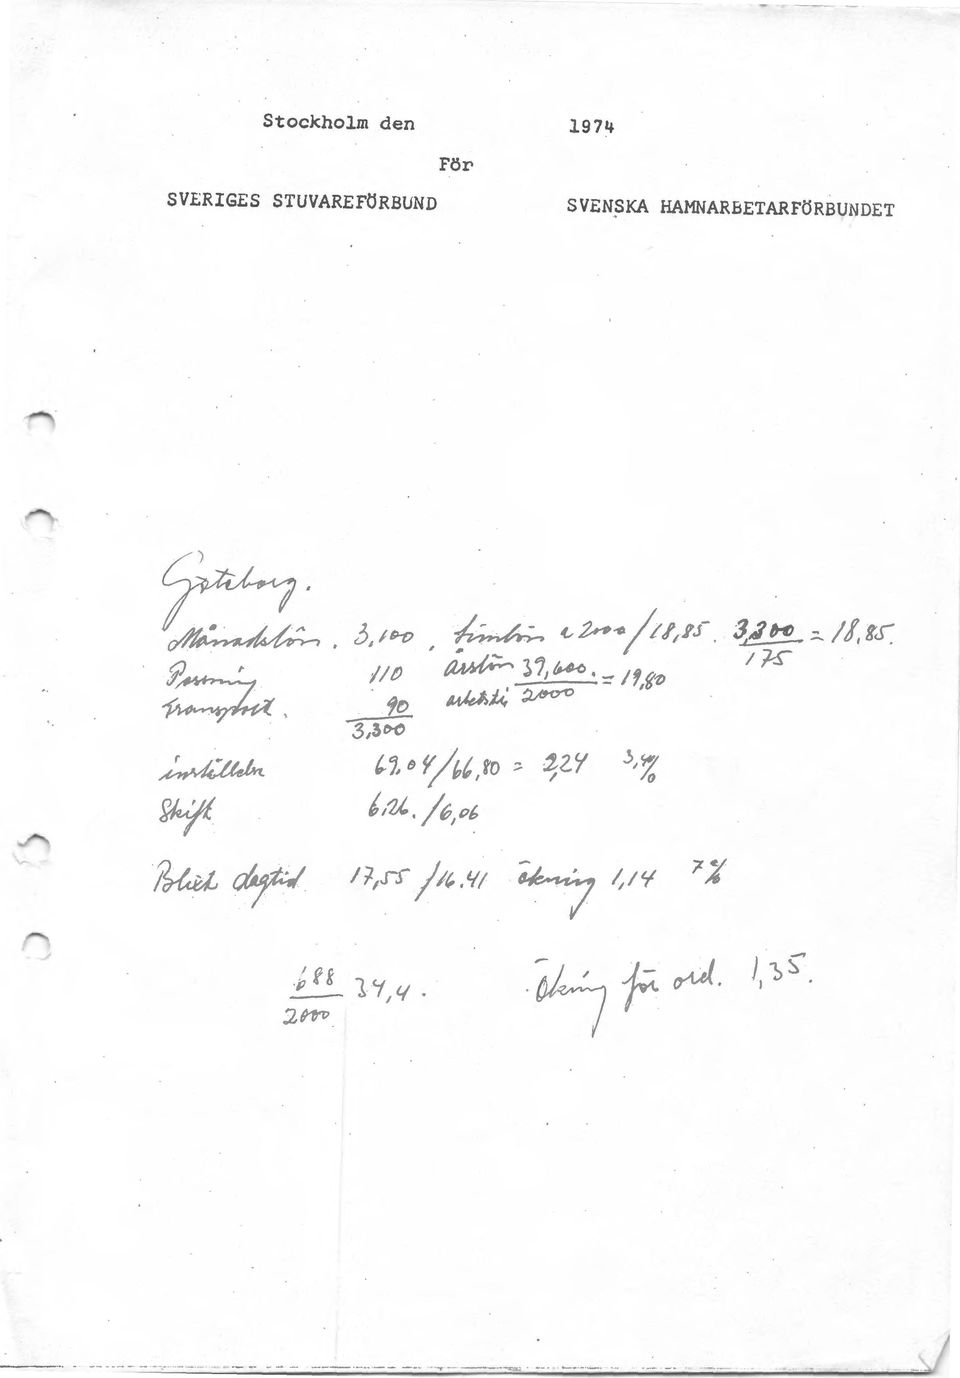 Stockholm den 1974
För
SVERIGES STUVAREFÖRBUND SVENSKA HAMNARBETARFÖRBUNDET
Göteborg.
Månadslön. 3,100, timlön 2000/18,85. 3,300 = 18,85.
175
110 årslön 39,600. = 19,80
Transport. 90 2000
3,300
inställelse 69,04/66,80 = 2,24 3,4%
Skift 6,26./6,06
dagtid 17,55/16.41 ökning 1,14 7%
688 34,4. Ökning för ord. 1,35.
2000